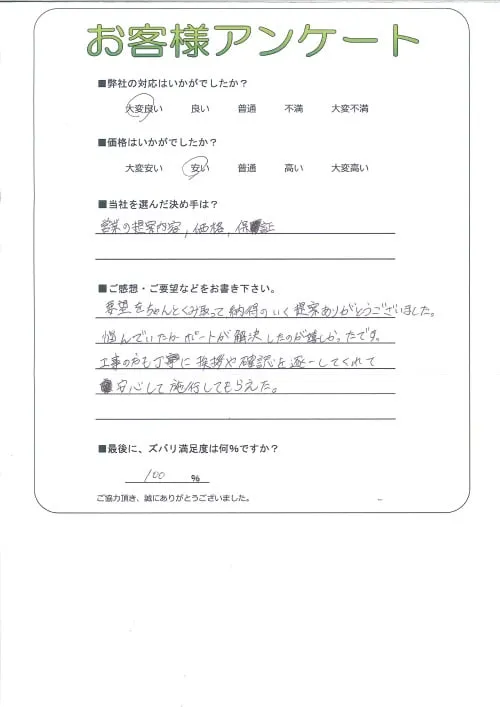 お客様アンケート
■弊社の対応はいかがでしたか？
大変良い 良い 普通 不満 大変不満
■価格はいかがでしたか？
大変安い 安い 普通 高い 大変高い
■当社を選んだ決め手は？
営業の提案内容, 価格, 保証
■ご感想・ご要望などをお書き下さい。
希望をちゃんとくみ取って納得のいく提案ありがとうございました。
悩んでいたカーポートが解決したのが嬉しかったです。
工事の方も丁寧に挨拶や確認を逐一してくれて
安心して施行してもらえた。
■最後に、ズバリ満足度は何％ですか？
100 ％
ご協力頂き、誠にありがとうございました。